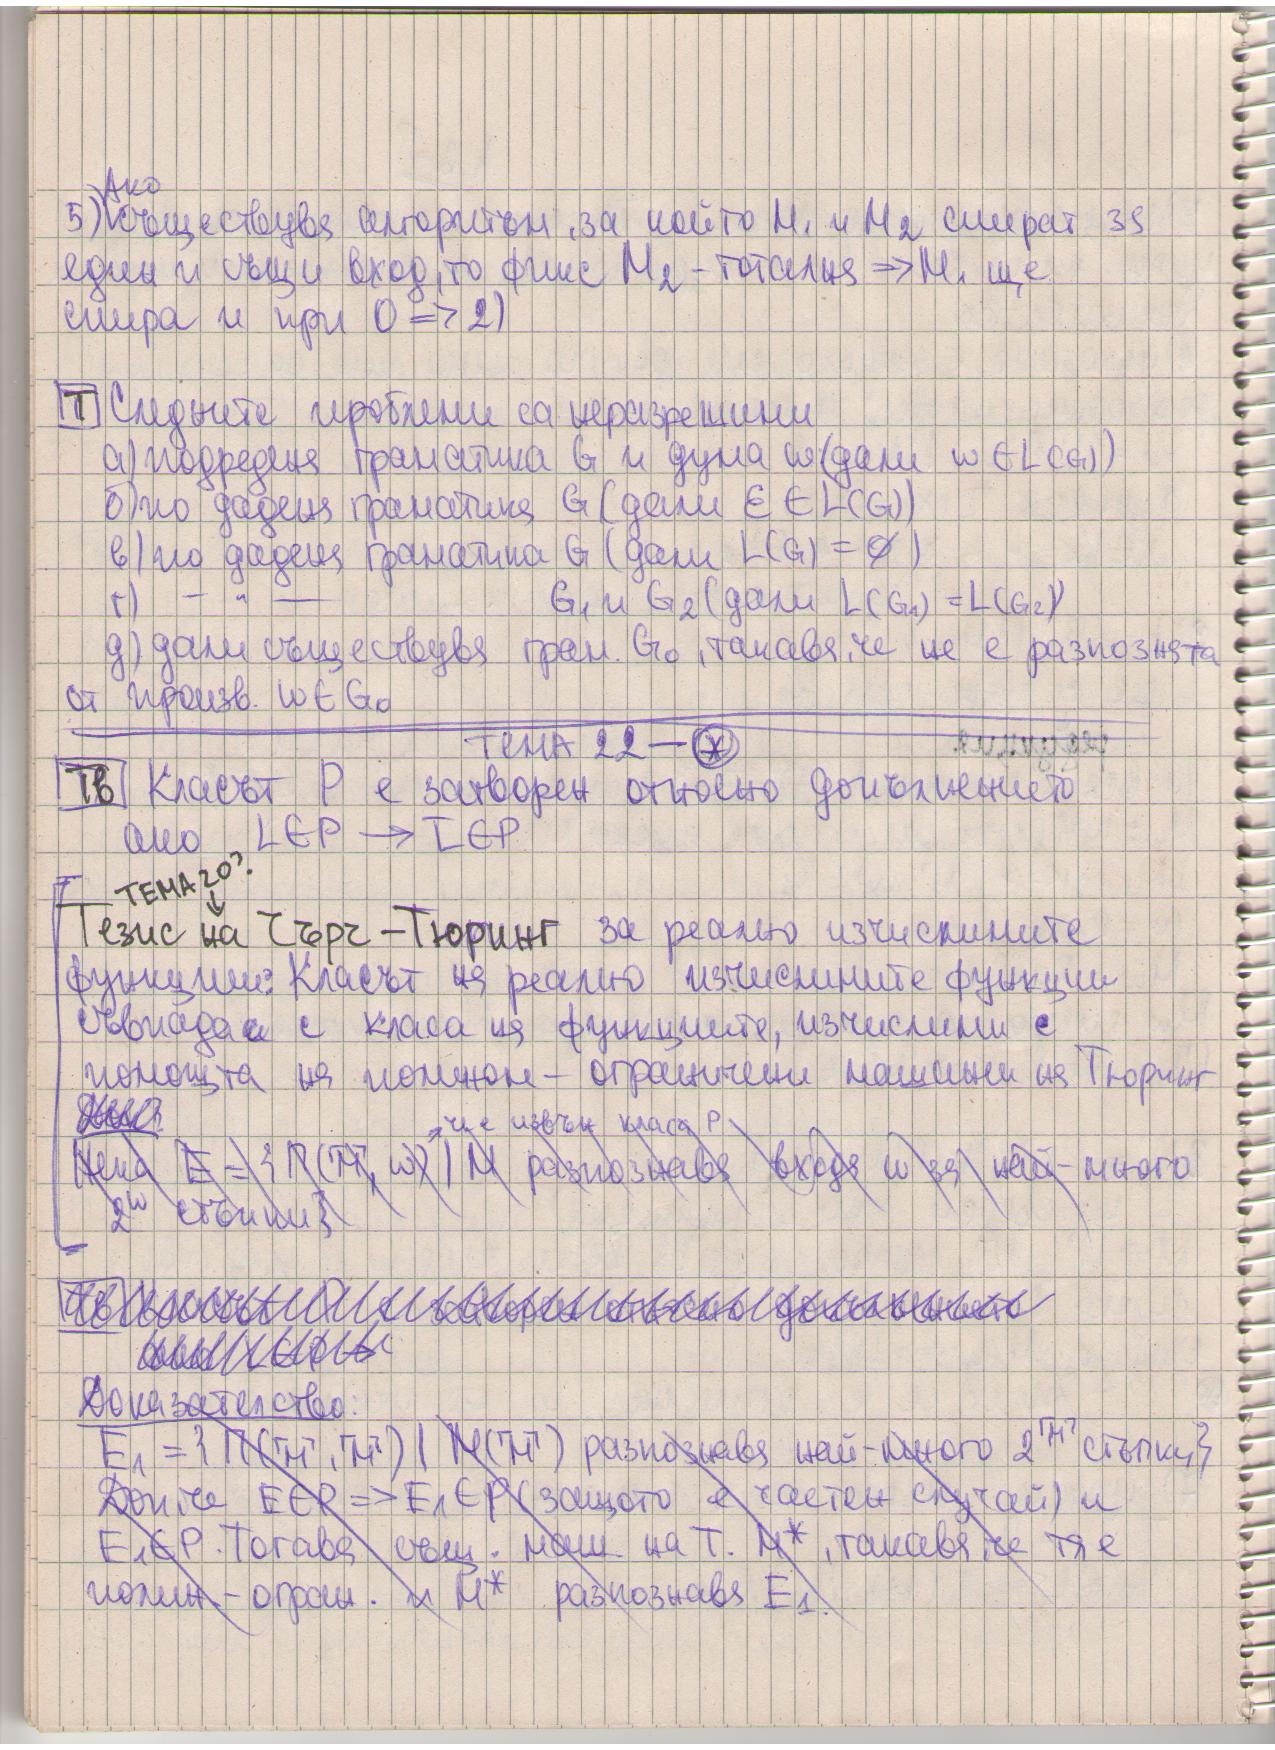 Ако
5) съществува алгоритъм, за който M₁ и M₂ спират за
един и същи вход, то фикс M₂ - тотална => M₁ ще
спира и при 0 => 2)
Т Следните проблеми са неразрешими
а) подредена граматика G и дума w (дали w ∈ L(G))
б) по дадена граматика G (дали ε ∈ L(G))
в) по дадена граматика G (дали L(G) = ∅)
г) — " — G₁ и G₂ (дали L(G₁) = L(G₂))
д) дали съществува грам. G₀, такава, че не е разпозната
от произв. w ∈ G₀
ТЕМА 22 — (*)
Тв Класът P е затворен относно допълнението
ако L ∈ P → L̅ ∈ P
ТЕМА 20?
Тезис на Чърч – Тюринг за реално изчислимите
функции: Класът на реално изчислимите функции
съвпада с класа на функциите, изчислими с
помощта на полином – ограничени машини на Тюринг
че е извън класа P
Нека E = {Π(⌈M⌉, w) | M разпознава входа w за най-много
2^w стъпки}
Тв Класът P е затворен относно допълнението
ако L ∈ P →
Доказателство:
E₁ = {Π(⌈M⌉, ⌈M⌉) | M(⌈M⌉) разпознава най-много 2^⌈M⌉ стъпки}
Доп. че E ∈ P => E₁ ∈ P (защото е частен случай) и
E₁ ∈ P. Тогава същ. маш. на Т. M*, такава, че тя е
полин. - огран. и M* разпознава E₁.